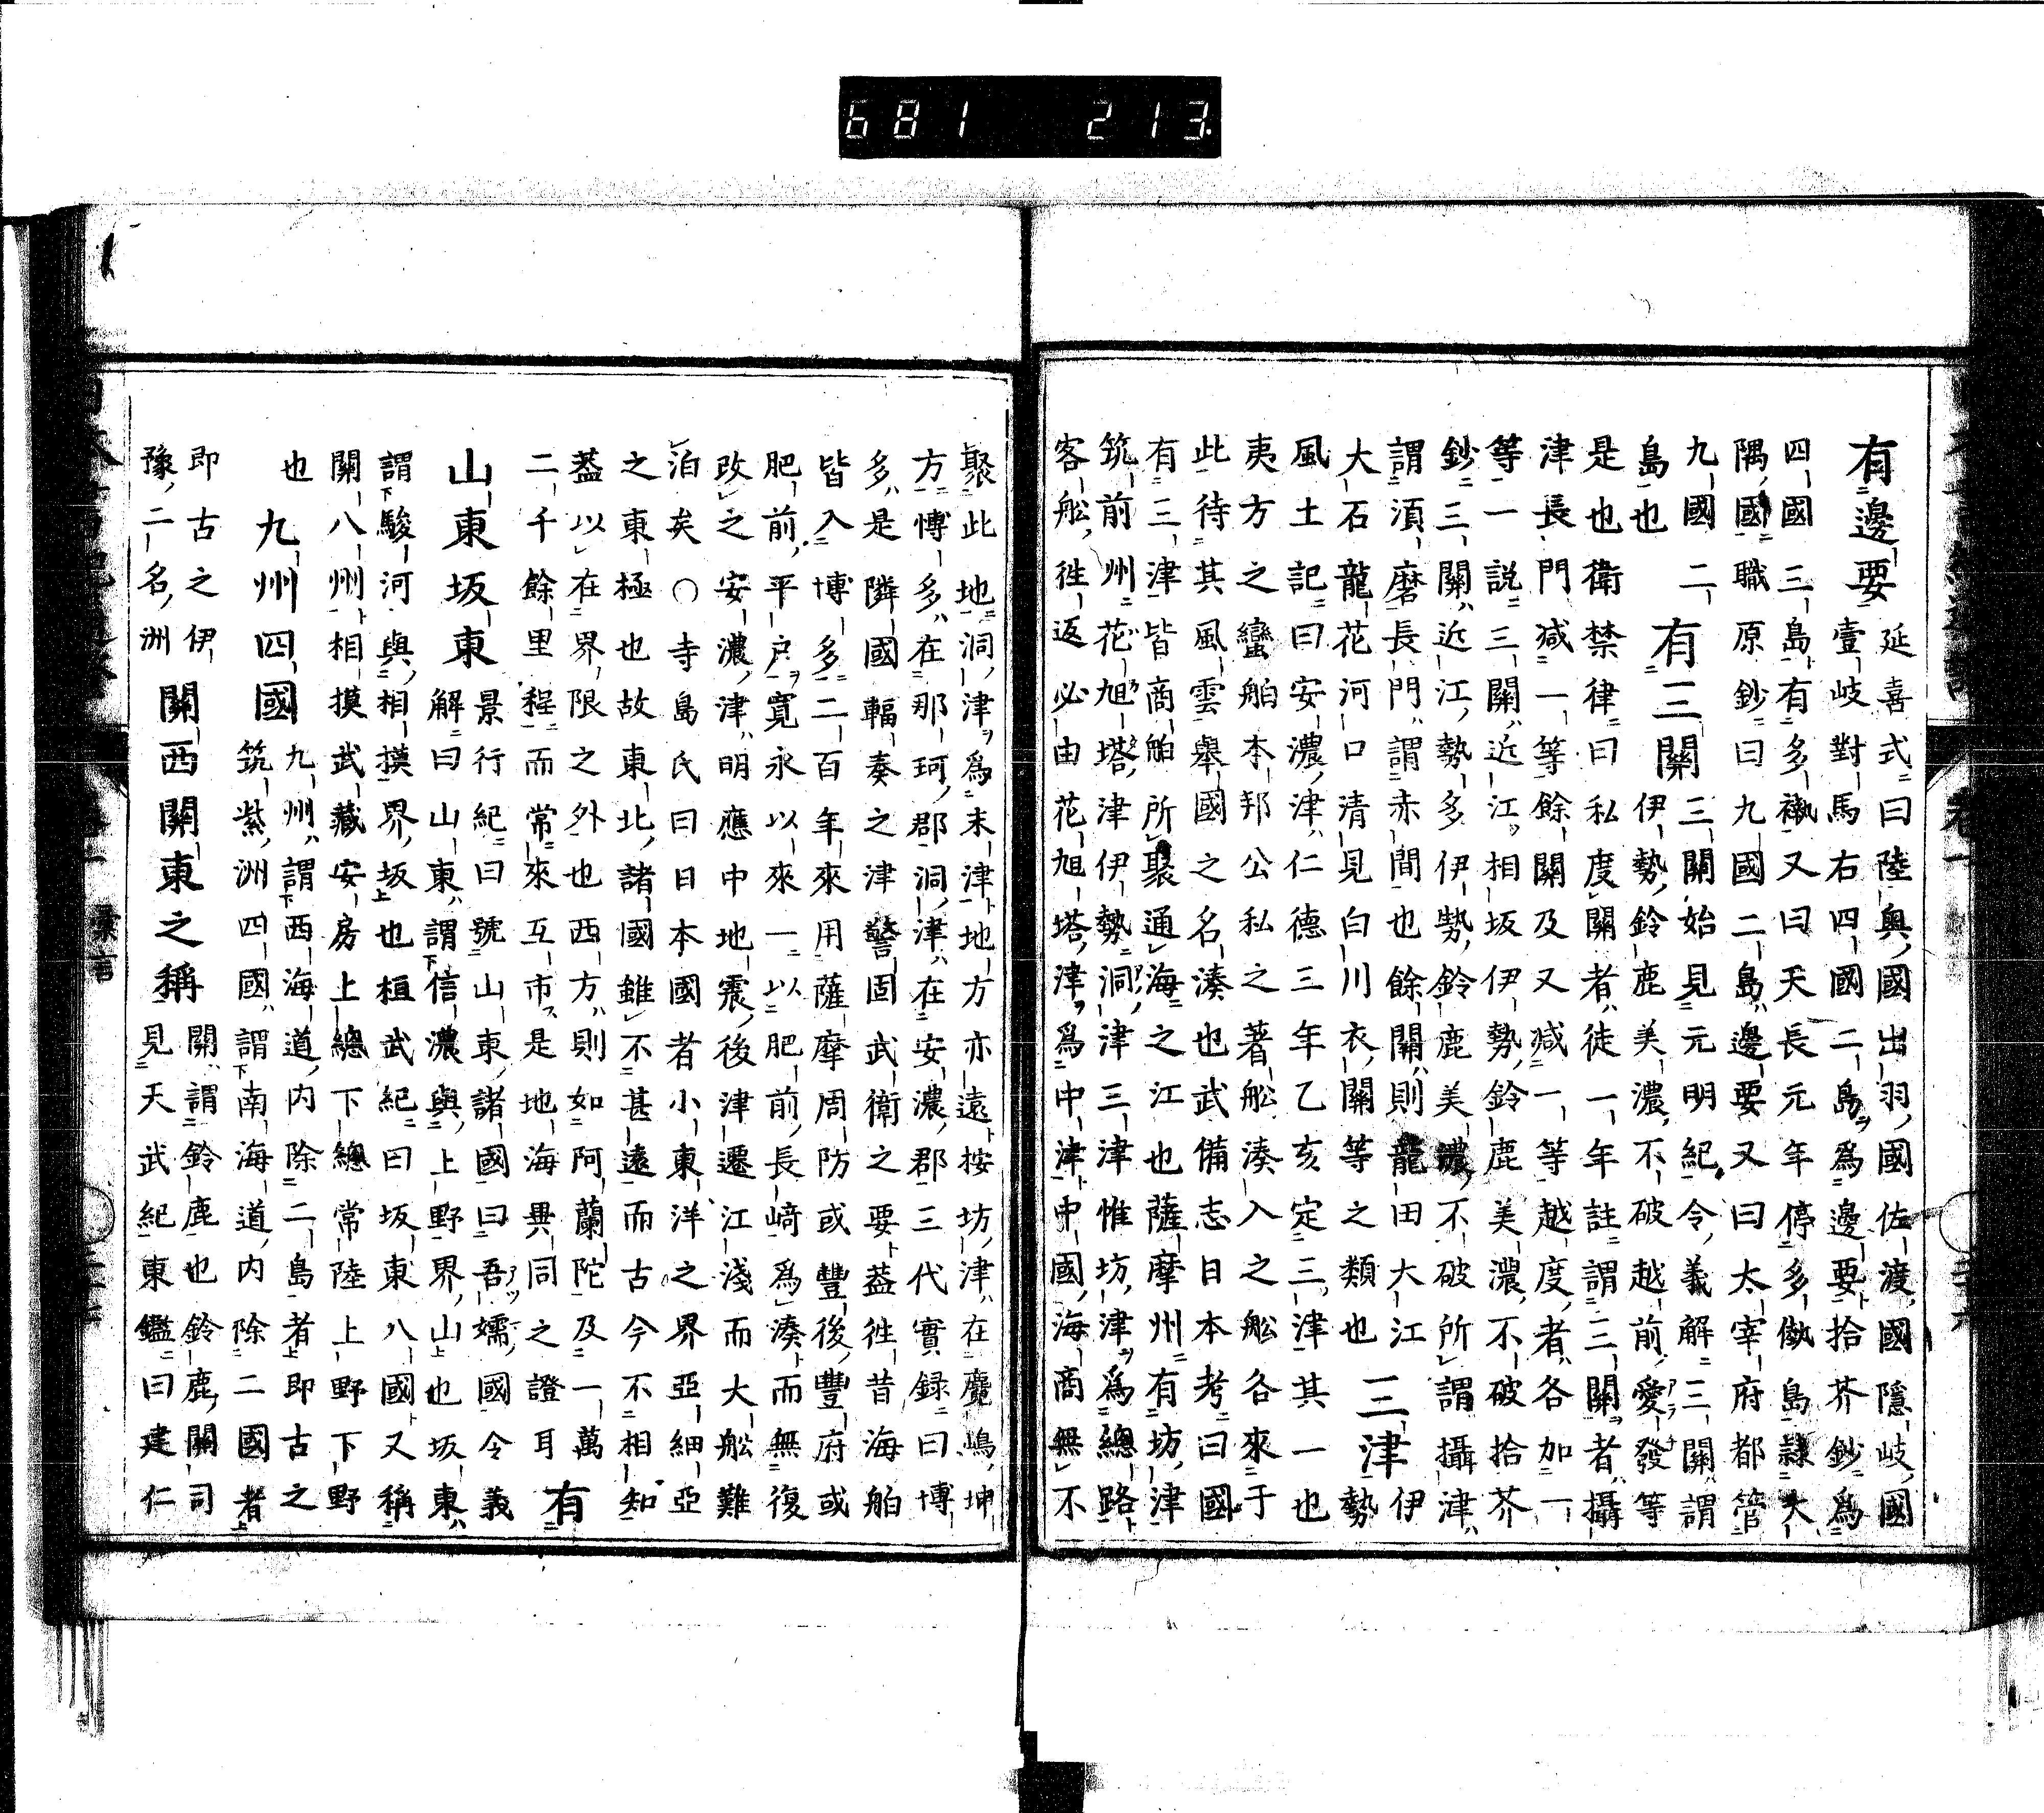 681 213.
有邊要延喜式曰陸奥國出羽國佐渡國隱岐國
壹岐對馬右四國二島爲邊要拾芥鈔爲
四國三島有多褹又曰天長元年停多褹島隷大
隅國職原鈔曰九國二島邊要又曰太宰府都管
九國二
島也有三關三關始見元明紀令義解三關謂
伊勢鈴鹿美濃不破越前愛發等
是也衛禁律曰私度關者徒一年註謂三關者攝
津長門减一等餘關及又减一等越度者各加一
等一説三關近江相坂伊勢鈴鹿美濃不破拾芥
鈔三關近江勢多伊勢鈴鹿美濃不破所謂攝津
謂湏磨長門謂赤間也餘關則龍田大江
大石龍花河口清見白川衣關等之類也三津伊
勢
風土記曰安濃津仁德三年乙亥定三津其一也
夷方之蠻舶本邦公私之著舩湊入之舩各來于
此待其風雲舉國之名湊也武備志日本考曰國
有三津皆商舶所聚通海之江也薩摩州有坊津
筑前州花旭塔津伊勢洞津三津惟坊津爲總路
客舩徃返必由花旭塔津爲中津中國海商無不
聚此地洞津爲末津地方亦遠按坊津在麑嶋坤
方博多在那珂郡洞津在安濃郡三代實録曰博
多是隣國輻湊之津警固武衛之要蓋徃昔海舶
皆入博多二百年來用薩摩周防或豐後豐府或
肥前平户寛永以來一以肥前長崎爲湊而無復
改之安濃津明應中地震後津遷江淺而大舩難
泊矣○寺島氏曰日本國者小東洋之界亞細亞
之東極也故東北諸國雖不甚遠而古今不相知
蓋以在界限之外也西方則如阿蘭陀及一萬
二千餘里程而常來互市是地海異同之證耳有
山東坂東景行紀曰號山東諸國曰吾嬬國令義
解曰山東謂信濃與上野界山也坂東
謂駿河與相摸界坂也桓武紀曰坂東八國又稱
關八州相摸武藏安房上總下總常陸上野下野
也九州四國九州謂西海道内除二島者即古之
筑紫洲四國謂南海道内除二國者
即古之伊
豫二名洲關西關東之稱關謂鈴鹿也鈴鹿關司
見天武紀東鑑曰建仁